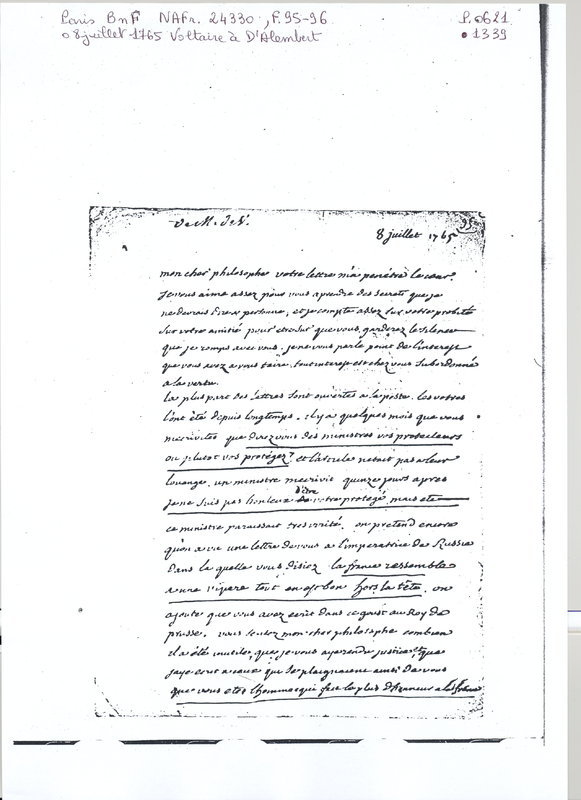 Paris BnF NAFr. 24330, F. 95-96
P. 0621
8 juillet 1765 Voltaire à D'Alembert
1339
de M. de V.
95
8 juillet 1765
mon cher philosophe votre lettre m'a penetré le cœur.
Je vous aime assez pour vous aprendre des secrets que je
ne devrais dire a personne, et je compte assez sur votre probité
sur votre amitié pour etre sur que vous garderez le silence
que je romps avec vous. je ne vous parle point de l'interest
que vous avez a vous taire. tout interest est chez vous subordonné
a la vertu.
la plus part des lettres sont ouvertes a la poste. les votres
l'ont été depuis longtemps. il y a quelques mois que vous
m'ecrivites que direz vous des ministres vos protecteurs
ou plutot vos protégez? et l'article n'etait pas a leur
louange. un ministre m'ecrivit quinze jours apres
je ne suis pas honteux d'etre votre protégé mais etc
ce ministre paraissait tres irrité. on pretend encore
qu'on a vu une lettre de vous a l'imperatrice de Russie
dans la quelle vous disiez la france ressemble
a une vipere tout en est bon hors la tête. on
ajoute que vous avez ecrit dans ce goust au Roy de
prusse. vous sentez mon cher philosophe combien
il a été inutile que je vous aye rendu justice et que
j'aye ecrit a ceux qui se plaignaient ainsi de vous
que vous etes l'homme qui fait le plus d'honneur a la france